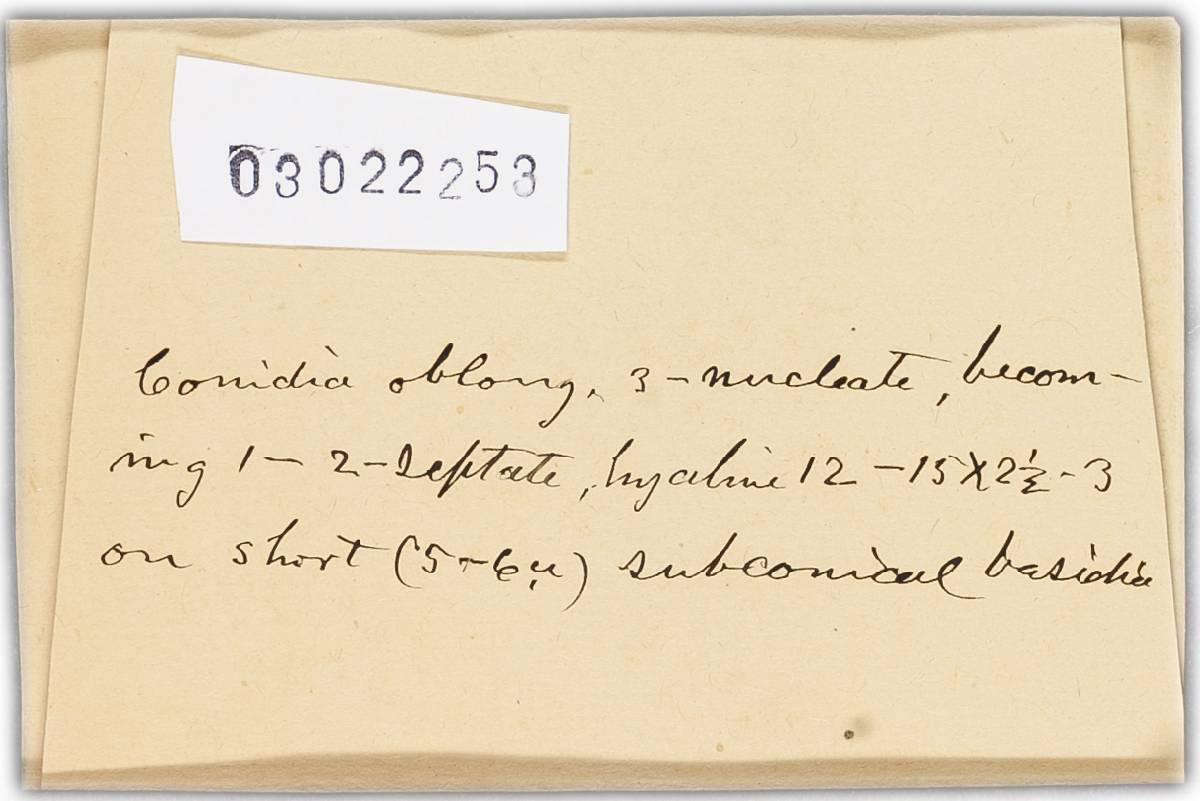 03022253
Conidia oblong, 3-nucleate, becom-
ing 1-2-septate, hyaline 12-15X2½-3
on short (5-6µ) subconical basidia